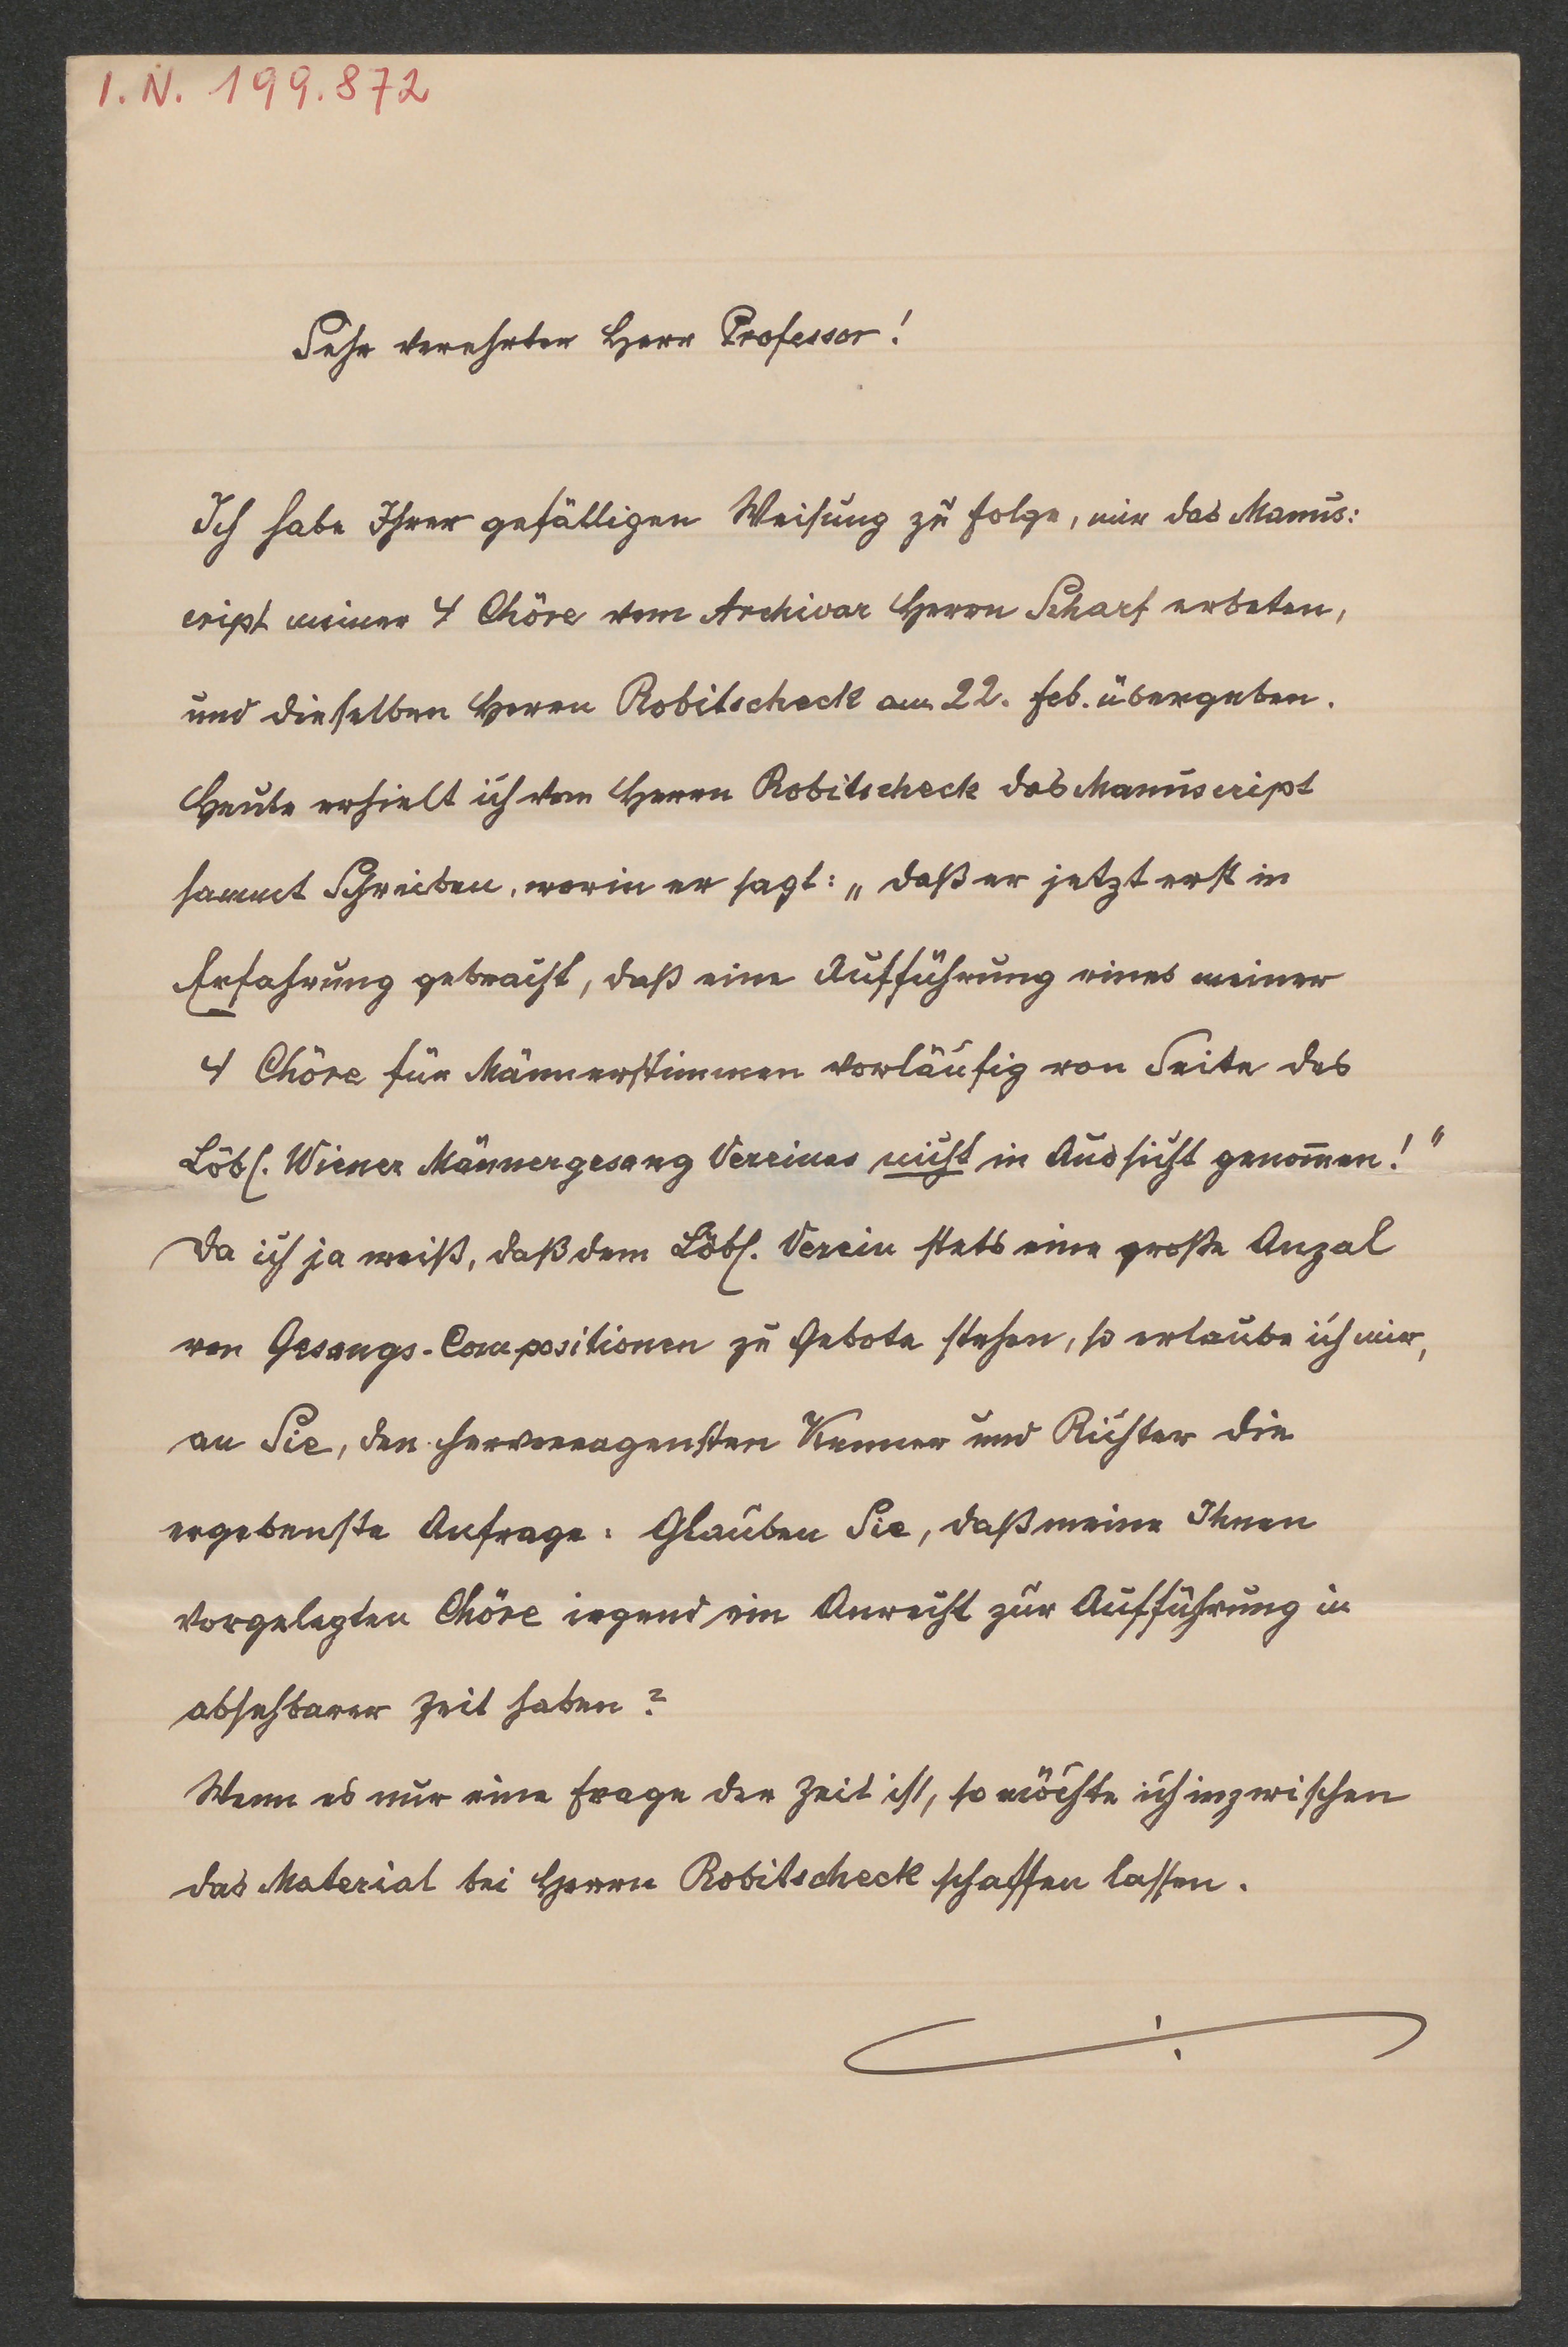 I. N. 199.872
Sehr verehrter Herr Professor!
Ich habe Ihrer gefälligen Weisung zu folge, mir das Manus:
cript meiner 4 Chöre vom Archivar Herrn Scharf erbeten,
und dieselben Herrn Robitscheck am 22. Feb. übergeben.
Heute erhielt ich von Herrn Robitscheck das Manuscript
sammt Schreiben, worin er sagt: „daß er jetzt erst in
Erfahrung gebracht, daß eine Aufführung eines meiner
4 Chöre für Männerstimmen vorläufig von Seite des
Löbl. Wiener Männergesang Vereines nicht in Aussicht genom̄en!"
Da ich ja weiß, daß dem Löbl. Verein stets eine große Anzal
von Gesangs-Compositionen zu Gebote stehen, so erlaube ich mir,
an Sie, den hervorragensten Kenner und Richter die
ergebenste Anfrage: Glauben Sie, daß meine Ihnen
vorgelegten Chöre irgend ein Anrecht zur Aufführung in
absehbarer Zeit haben?
Wenn es nur eine Frage der Zeit ist, so möchte ich inzwischen
das Material bei Herrn Robitscheck schaffen lassen.